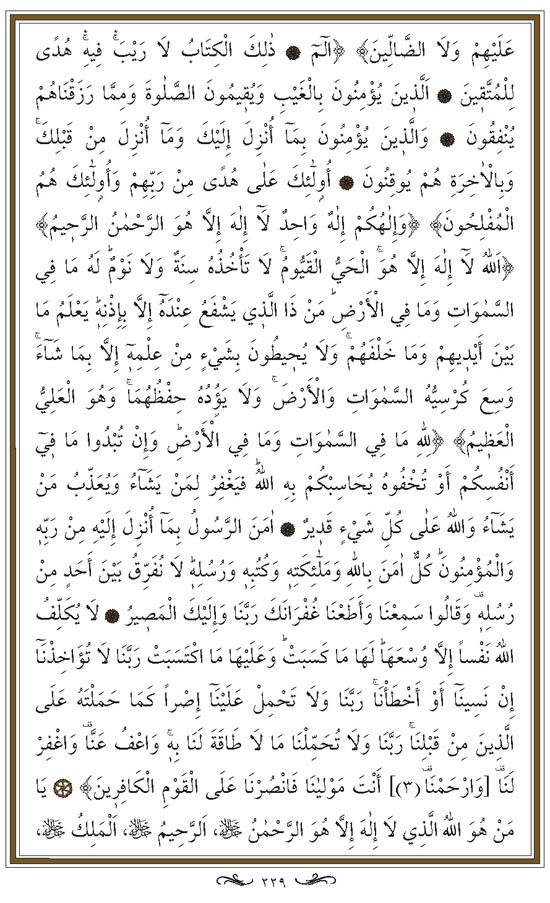 عَلَيْهِمْ وَلَا الضَّالِّينَ﴾ ﴿الٓمٓ ۝ ذٰلِكَ الْكِتَابُ لَا رَيْبَۚۛ فِيهِۚۛ هُدًى
لِلْمُتَّقِينَ ۝ اَلَّذِينَ يُؤْمِنُونَ بِالْغَيْبِ وَيُقِيمُونَ الصَّلٰوةَ وَمِمَّا رَزَقْنَاهُمْ
يُنْفِقُونَ ۝ وَالَّذِينَ يُؤْمِنُونَ بِمَٓا أُنْزِلَ إِلَيْكَ وَمَٓا أُنْزِلَ مِنْ قَبْلِكَۚ
وَبِالْاٰخِرَةِ هُمْ يُوقِنُونَ ۝ أُولٰٓئِكَ عَلٰى هُدًى مِنْ رَبِّهِمْ وَأُولٰٓئِكَ هُمُ
الْمُفْلِحُونَ﴾ ﴿وَإِلٰهُكُمْ إِلٰهٌ وَاحِدٌ لَٓا إِلٰهَ إِلَّا هُوَ الرَّحْمٰنُ الرَّحِيمُ﴾
﴿اَللّٰهُ لَٓا إِلٰهَ إِلَّا هُوَۚ الْحَيُّ الْقَيُّومُۚ لَا تَأْخُذُهُ سِنَةٌ وَلَا نَوْمٌۜ لَهُ مَا فِي
السَّمٰوَاتِ وَمَا فِي الْأَرْضِۜ مَنْ ذَا الَّذِي يَشْفَعُ عِنْدَهُٓ إِلَّا بِإِذْنِهِۜ يَعْلَمُ مَا
بَيْنَ أَيْدِيهِمْ وَمَا خَلْفَهُمْۚ وَلَا يُحِيطُونَ بِشَيْءٍ مِنْ عِلْمِهِٓ إِلَّا بِمَا شَٓاءَۚ
وَسِعَ كُرْسِيُّهُ السَّمٰوَاتِ وَالْأَرْضَۚ وَلَا يَؤُدُهُ حِفْظُهُمَاۚ وَهُوَ الْعَلِيُّ
الْعَظِيمُ﴾ ﴿لِلّٰهِ مَا فِي السَّمٰوَاتِ وَمَا فِي الْأَرْضِۜ وَإِنْ تُبْدُوا مَا فِٓي
أَنْفُسِكُمْ أَوْ تُخْفُوهُ يُحَاسِبْكُمْ بِهِ اللّٰهُۜ فَيَغْفِرُ لِمَنْ يَشَٓاءُ وَيُعَذِّبُ مَنْ
يَشَٓاءُۜ وَاللّٰهُ عَلٰى كُلِّ شَيْءٍ قَدِيرٌ ۝ اٰمَنَ الرَّسُولُ بِمَٓا أُنْزِلَ إِلَيْهِ مِنْ رَبِّهِ
وَالْمُؤْمِنُونَۜ كُلٌّ اٰمَنَ بِاللّٰهِ وَمَلٰٓئِكَتِهِ وَكُتُبِهِ وَرُسُلِهِۜ لَا نُفَرِّقُ بَيْنَ أَحَدٍ مِنْ
رُسُلِهِ وَقَالُوا سَمِعْنَا وَأَطَعْنَا غُفْرَانَكَ رَبَّنَا وَإِلَيْكَ الْمَصِيرُ ۝ لَا يُكَلِّفُ
اللّٰهُ نَفْساً إِلَّا وُسْعَهَاۜ لَهَا مَا كَسَبَتْ وَعَلَيْهَا مَا اكْتَسَبَتْۜ رَبَّنَا لَا تُؤَاخِذْنَٓا
إِنْ نَسِينَٓا أَوْ أَخْطَأْنَاۚ رَبَّنَا وَلَا تَحْمِلْ عَلَيْنَٓا إِصْراً كَمَا حَمَلْتَهُ عَلَى
الَّذِينَ مِنْ قَبْلِنَاۚ رَبَّنَا وَلَا تُحَمِّلْنَا مَا لَا طَاقَةَ لَنَا بِهِۚ وَاعْفُ عَنَّا وَاغْفِرْ
لَنَا [وَارْحَمْنَا (٣)] أَنْتَ مَوْلٰينَا فَانْصُرْنَا عَلَى الْقَوْمِ الْكَافِرِينَ﴾ ۝ يَا
مَنْ هُوَ اللّٰهُ الَّذِي لَا إِلٰهَ إِلَّا هُوَ الرَّحْمٰنُ ﷻ، اَلرَّحِيمُ ﷻ، اَلْمَلِكُ ﷻ،
٢٢٩